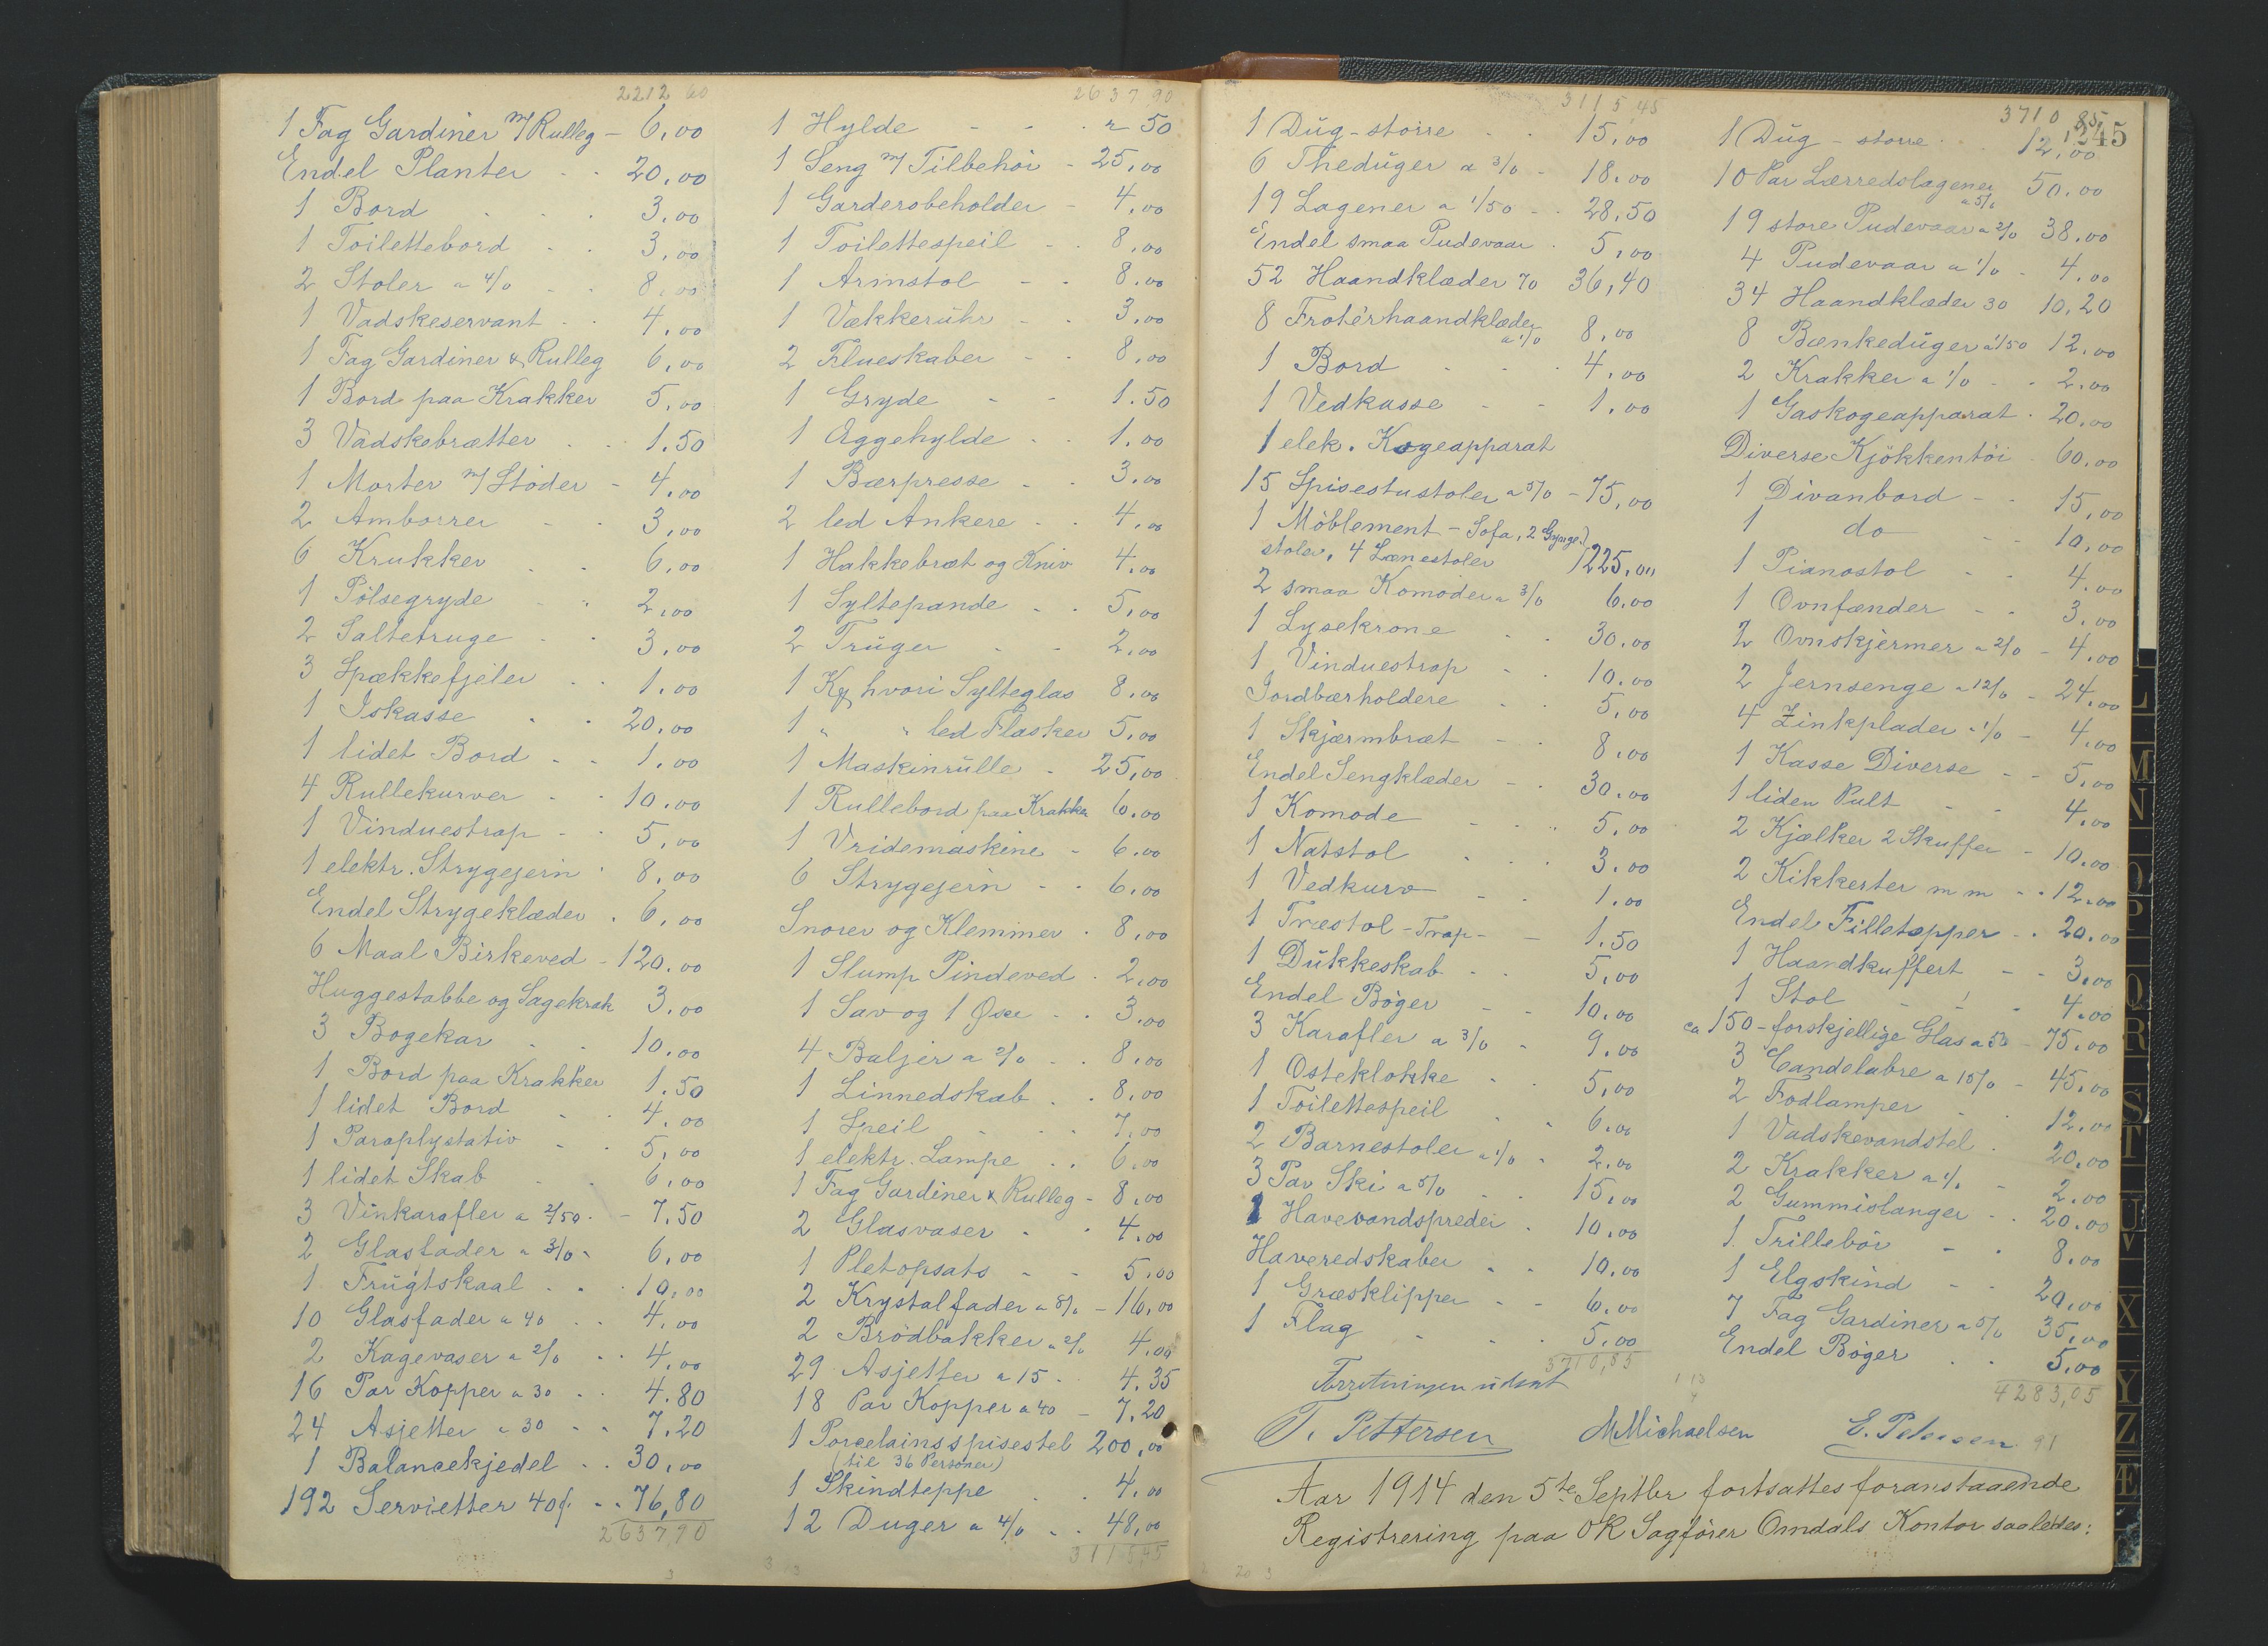 2212 60
1 Fag Gardiner m/ Rulleg - 6,00
Endel Planter - - 20,00
1 Bord - - 3,00
1 Toilettebord - - 3,00
2 Stoler a 4/0 - - 8,00
1 Vadskeservant - - 4,00
1 Fag Gardiner & Rulleg 6,00
1 Bord paa Krakker 5,00
3 Vadskebrætter - - 1.50
1 Morter m/ Stöder - 4,00
2 Amborrer - - 3,00
6 Krukker - - 6,00
1 Pölsegryde - - 2,00
2 Saltetruge - - 3,00
3 Spækkefjeler - - 1.00
1 Iskasse - - 20,00
1 lidet Bord - - 1,00
4 Rullekurver - - 10,00
1 Vinduestrap - - 5,00
1 elektr. Strygejern - 8,00
Endel Strygeklæder . 6,00
6 Maal Birkeved - 120,00
Huggestabbe og Sagekrak 3,00
3 Bogekar - - 10,00
1 Bord paa Krakker 1.50
1 lidet Bord - - 4,00
1 Paraplystativ - - 5,00
1 lidet Skab - - 6,00
3 Vinkarafler a 2/50 - 7.50
2 Glasfader a 3/0 - 6,00
1 Frügtskaal - - 10,00
10 Glasfader a 40 - - 4,00
2 Kagevaser a 2/0 - - 4,00
16 Par Kopper a 30 - - 4.80
24 Asjetter a 30 - - 7.20
1 Balancekjedel - - 30,00
192 Servietter 40 - - 76,80
2637,90
2637 90
1 Hylde - - - 50
1 Seng m/ Tilbehör - 25,00
1 Garderobeholder - 4,00
1 Toilettespeil - - 8,00
1 Armstol - - 8,00
1 Vækkerühr - - 3,00
2 Flueskaber - - 8,00
1 Gryde - - 1.50
1 Æggehylde - - 1.00
1 Bærpresse - - 3.00
2 led Ankere - - 4,00
1 Hakkebræt og Kniv 4,00
1 Syltepande - - 5,00
2 Trüger - - 2,00
1 hvori Sylteglas 8,00
1 " " led Flasker 5,00
1 Maskinrülle - 25,00
1 Rullebord paa Krakker 6,00
1 Vridemaskine - 6,00
6 Strygejern - - 6,00
Snorer og Klemmer - 8,00
1 Slump Pindeved - 2,00
1 Sav og 1 Øxe - - 3,00
4 Baljer a 2/0 - - 8,00
1 Linnedskab - - 8,00
1 Speil - - 7,00
1 elektr. Lampe - - 6,00
1 Fag Gardiner & Rulleg - 8,00
2 Glasvaser - - 4,00
1 Pletopsats - - 5,00
2 Krystalfader a 8/0 - 16,00
2 Brödbakker a 2/0 4,00
29 Asjetter a 15 - 4.35
18 Par Kopper a 40 - 7,20
1 Porcelainsspisestel 200,00
(til 36 Personer)
1 Skindteppe - - 4,00
12 Duger a 4/0 - - 48,00
3115,45
3115,45
1 Düg - större - - 15,00
6 Thedüger a 3/0 - 18,00
19 Lagener a 1/50 - - 28,50
Endel smaa Pudevaar - 5,00
52 Haandklæder 70 36,40
8 Frotérhaandklæder
a 1/0 8,00
1 Bord - - - 4,00
1 Vedkasse - - 1,00
1 elek. Kogeapparat
15 Spisestustoler a 5/0 - 75,00
1 Möblement - Sofa, 2 Gynge-
stoler, 4 Lænestoler 1225,00
2 smaa Komoder a 3/0 6,00
1 Lysekrone - - 30,00
1 Vinduestrap - 10,00
Jordbærholdere - - 5,00
1 Skjærmbræt - - 8,00
Endel Sengklæder - - 30,00
1 Komode - - - 5,00
1 Natstol - - - 3,00
1 Vedkurv - - 1,00
1 Træstol - Trap - - 1.50
1 Dükkeskab - - 5,00
Endel Böger - - 10,00
3 Karafler a 3/0 - 9,00
1 Osteklokke - - 5,00
1 Toilettespeil - - 6,00
2 Barnestoler a 1/0 - 2,00
3 Par Ski a 5/0 - - 15,00
1 Havevandspreder - 10,00
Haveredskaber - - 10,00
1 Græsklipper - - 6,00
1 Flag - - - 5,00
3710,85
3710 85
245
1 Düg - större - - 12,00
10 Par Lærredslagener
a 5/0 50,00
19 store Pudevaar a 2/0 38,00
4 Pudevaar a 1/0 - 4,00
34 Haandklæder 30 10,20
8 Bænkedüger a 1/50 12,00
2 Krakker a 1/0 - - 2,00
1 Gaskogeapparat - 20,00
Diverse Kjökkentöi - 60,00
1 Divanbord - - 15,00
1 do - - 10,00
1 Pianostol - - 4,00
1 Ovnfænder - - 3,00
2 Ovnskjermer a 2/0 - 4,00
2 Jernsenge a 12/0 - 24,00
4 Zinkplader a 1/0 - 4,00
1 Kasse Diverse - - 5,00
1 liden Pult - - 4,00
2 Kjælker 2 Skuffer - 10,00
2 Kikkerter m m - - 12,00
Endel Filletepper - - 20,00
1 Haandkuffert - - 3,00
1 Stol - - - 4,00
ca 150 - forskjellige Glas a 50 - 75,00
3 Candelabre a 15/0 - 45,00
2 Fodlamper - - 12,00
1 Vadskevandstel - 20,00
2 Krakker a 1/0 - 2,00
2 Gummislanger - - 20,00
1 Trillebör - - 8,00
1 Elgskind - - 20,00
7 Fag Gardiner a 5/0 35,00
Endel Böger - - 5,00
4283,05
Forretningen sluttet
T. Pettersen MMichaelsen E. Petersen 91
Aar 1914 den 5te Septbr fortsattes foranstaaende
Registrering paa OR Sagförer Omdals Kontor saaledes:
L
M
N
O
P
Q
R
S
T
U
V
X
Y
Z
Æ